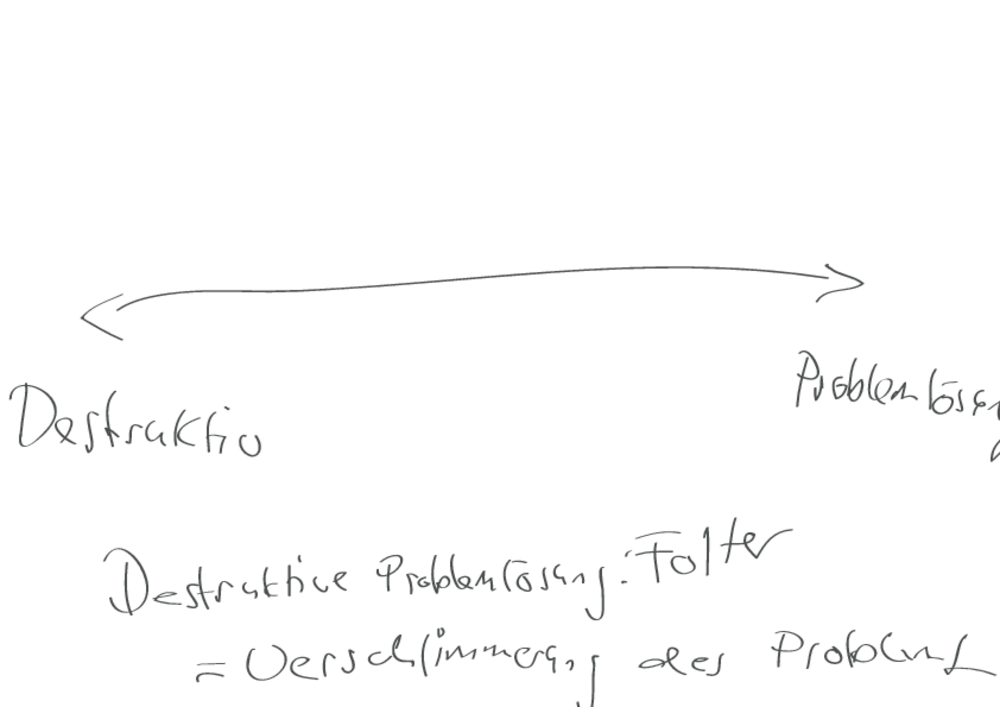 Destruktiv
Problemlösung
Destruktive Problemlösung: Folter
= Verschlimmerung des Problems